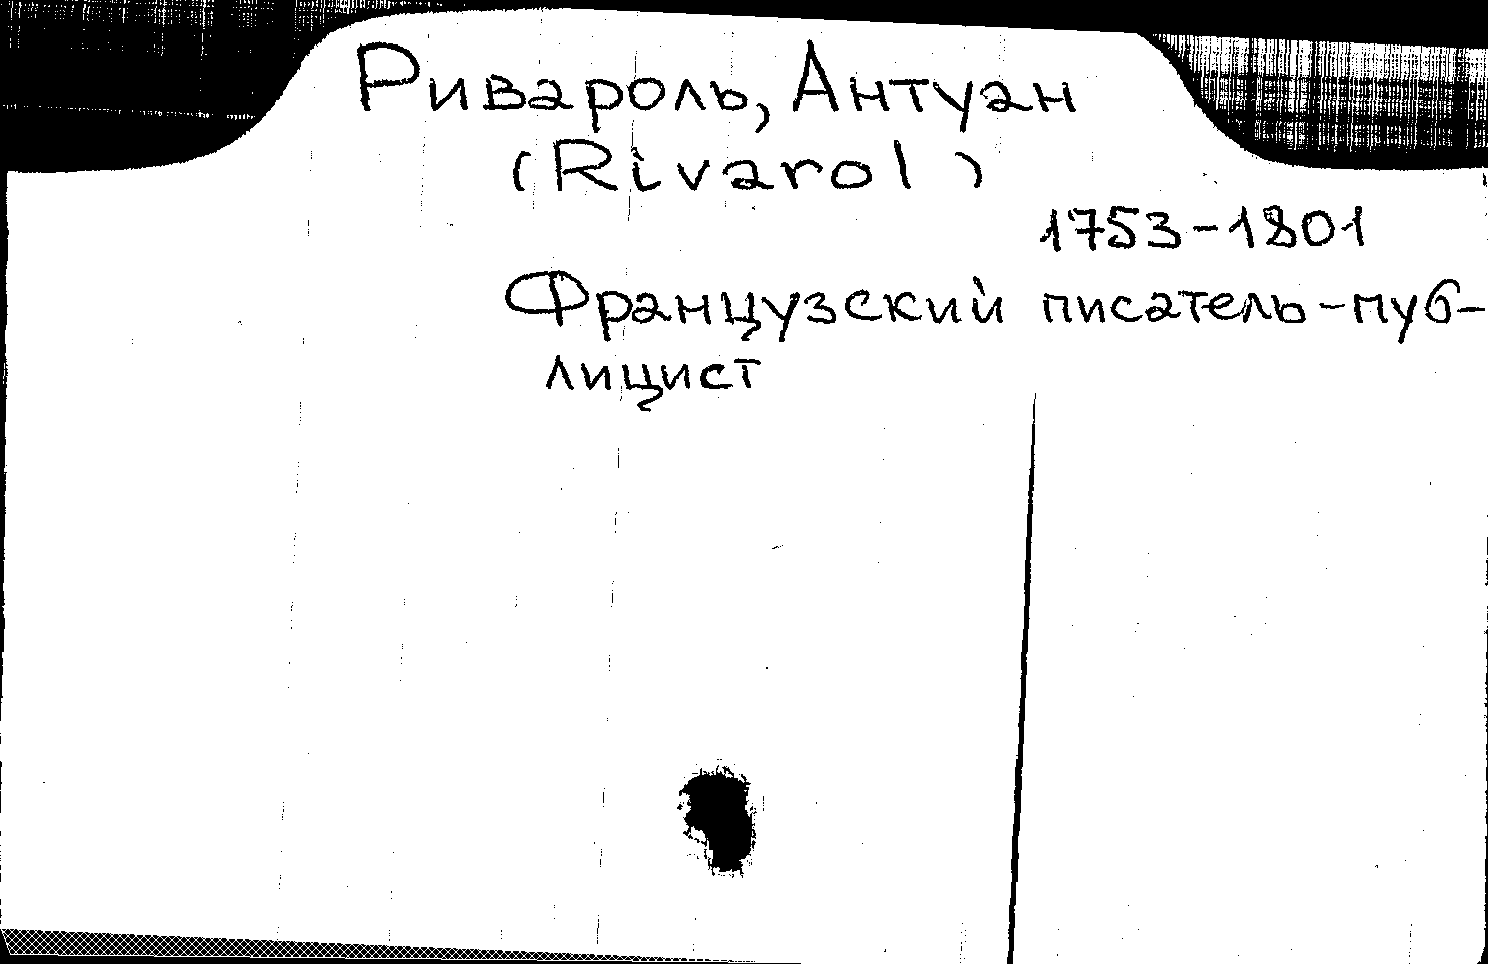 Ривароль, Антуан
(Rivarol)
1753-1801
Французский писатель-пуб-
лицист